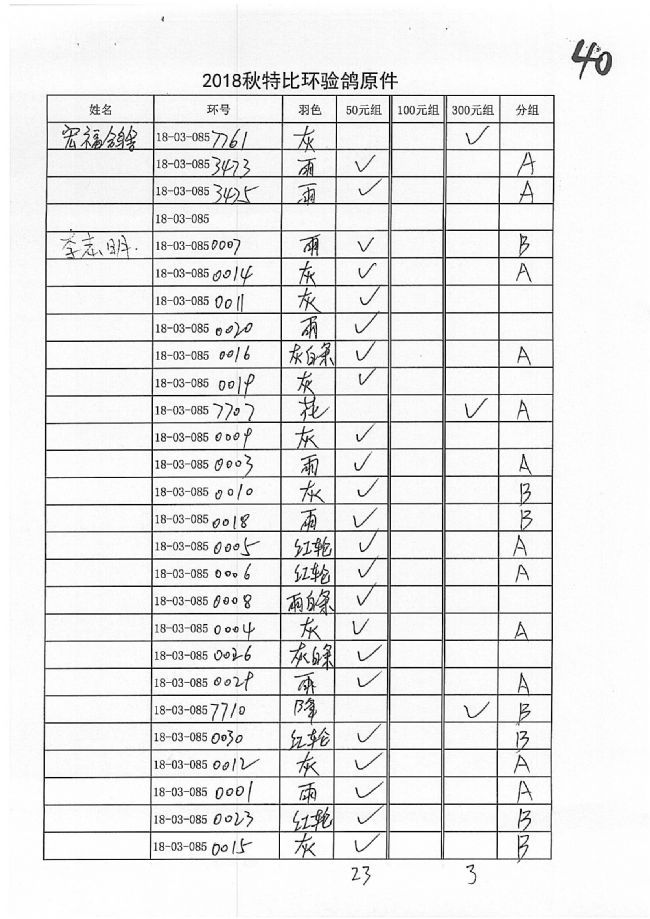 40
2018秋特比环验鸽原件
姓名 环号 羽色 50元组 100元组 300元组 分组
宏福鸽舍 18-03-085 7761 灰 ✓
18-03-085 3473 雨 ✓ A
18-03-085 3425 雨 ✓ A
18-03-085
李志明. 18-03-085 0007 雨 ✓ B
18-03-085 0014 灰 ✓ A
18-03-085 0011 灰 ✓
18-03-085 0020 雨 ✓
18-03-085 0016 灰白条 ✓ A
18-03-085 0019 灰 ✓
18-03-085 7707 花 ✓ A
18-03-085 0009 灰 ✓
18-03-085 0003 雨 ✓ A
18-03-085 0010 灰 ✓ B
18-03-085 0018 雨 ✓ B
18-03-085 0005 红轮 ✓ A
18-03-085 0006 红轮 ✓ A
18-03-085 0008 雨白条 ✓
18-03-085 0004 灰 ✓ A
18-03-085 0026 灰白条 ✓
18-03-085 0029 雨 ✓ A
18-03-085 7710 降 ✓ B
18-03-085 0030 红轮 ✓ B
18-03-085 0012 灰 ✓ A
18-03-085 0001 雨 ✓ A
18-03-085 0023 红轮 ✓ B
18-03-085 0015 灰 ✓ B
23 3